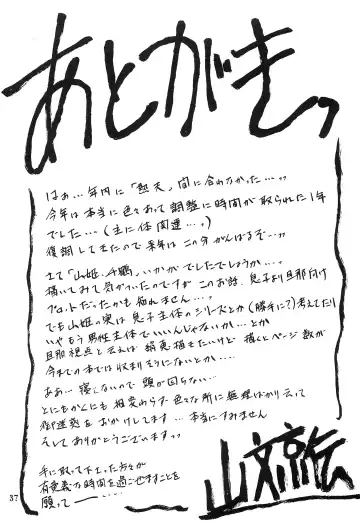 あとがきっ
はぁ…年内に「熱天」間に合わなかった…"
今年は本当に色々あって調整に時間が取られた1年
でした…(主に体関連…。)
復調してきたので来年はこの分がんばるぞ…"
さて「山姫、千鶴」いかがでしたでしょうか…。
描いてみて気がついたのですがこのお話、息子より旦那向け
プロットだったかも知れません…。
でも山姫の実は息子主体のシリーズとか(勝手に?)考えてたり
いやもう男性主体でいいんじゃないか…とか
旦那視点と云えば絹夏描きたいけど描くとページ数が
今までの本では収まりそうにないとか…
ああ…寝てないので頭が回らない…
とにもかくにも相変わらず色々な所に無理ばかり云って
御迷惑をおかけしてます…本当にすみません
そしてありがとうございます"
手に取って下さった方々が
有意義な時間を過ごせますことを
願って――…
山文京伝
37